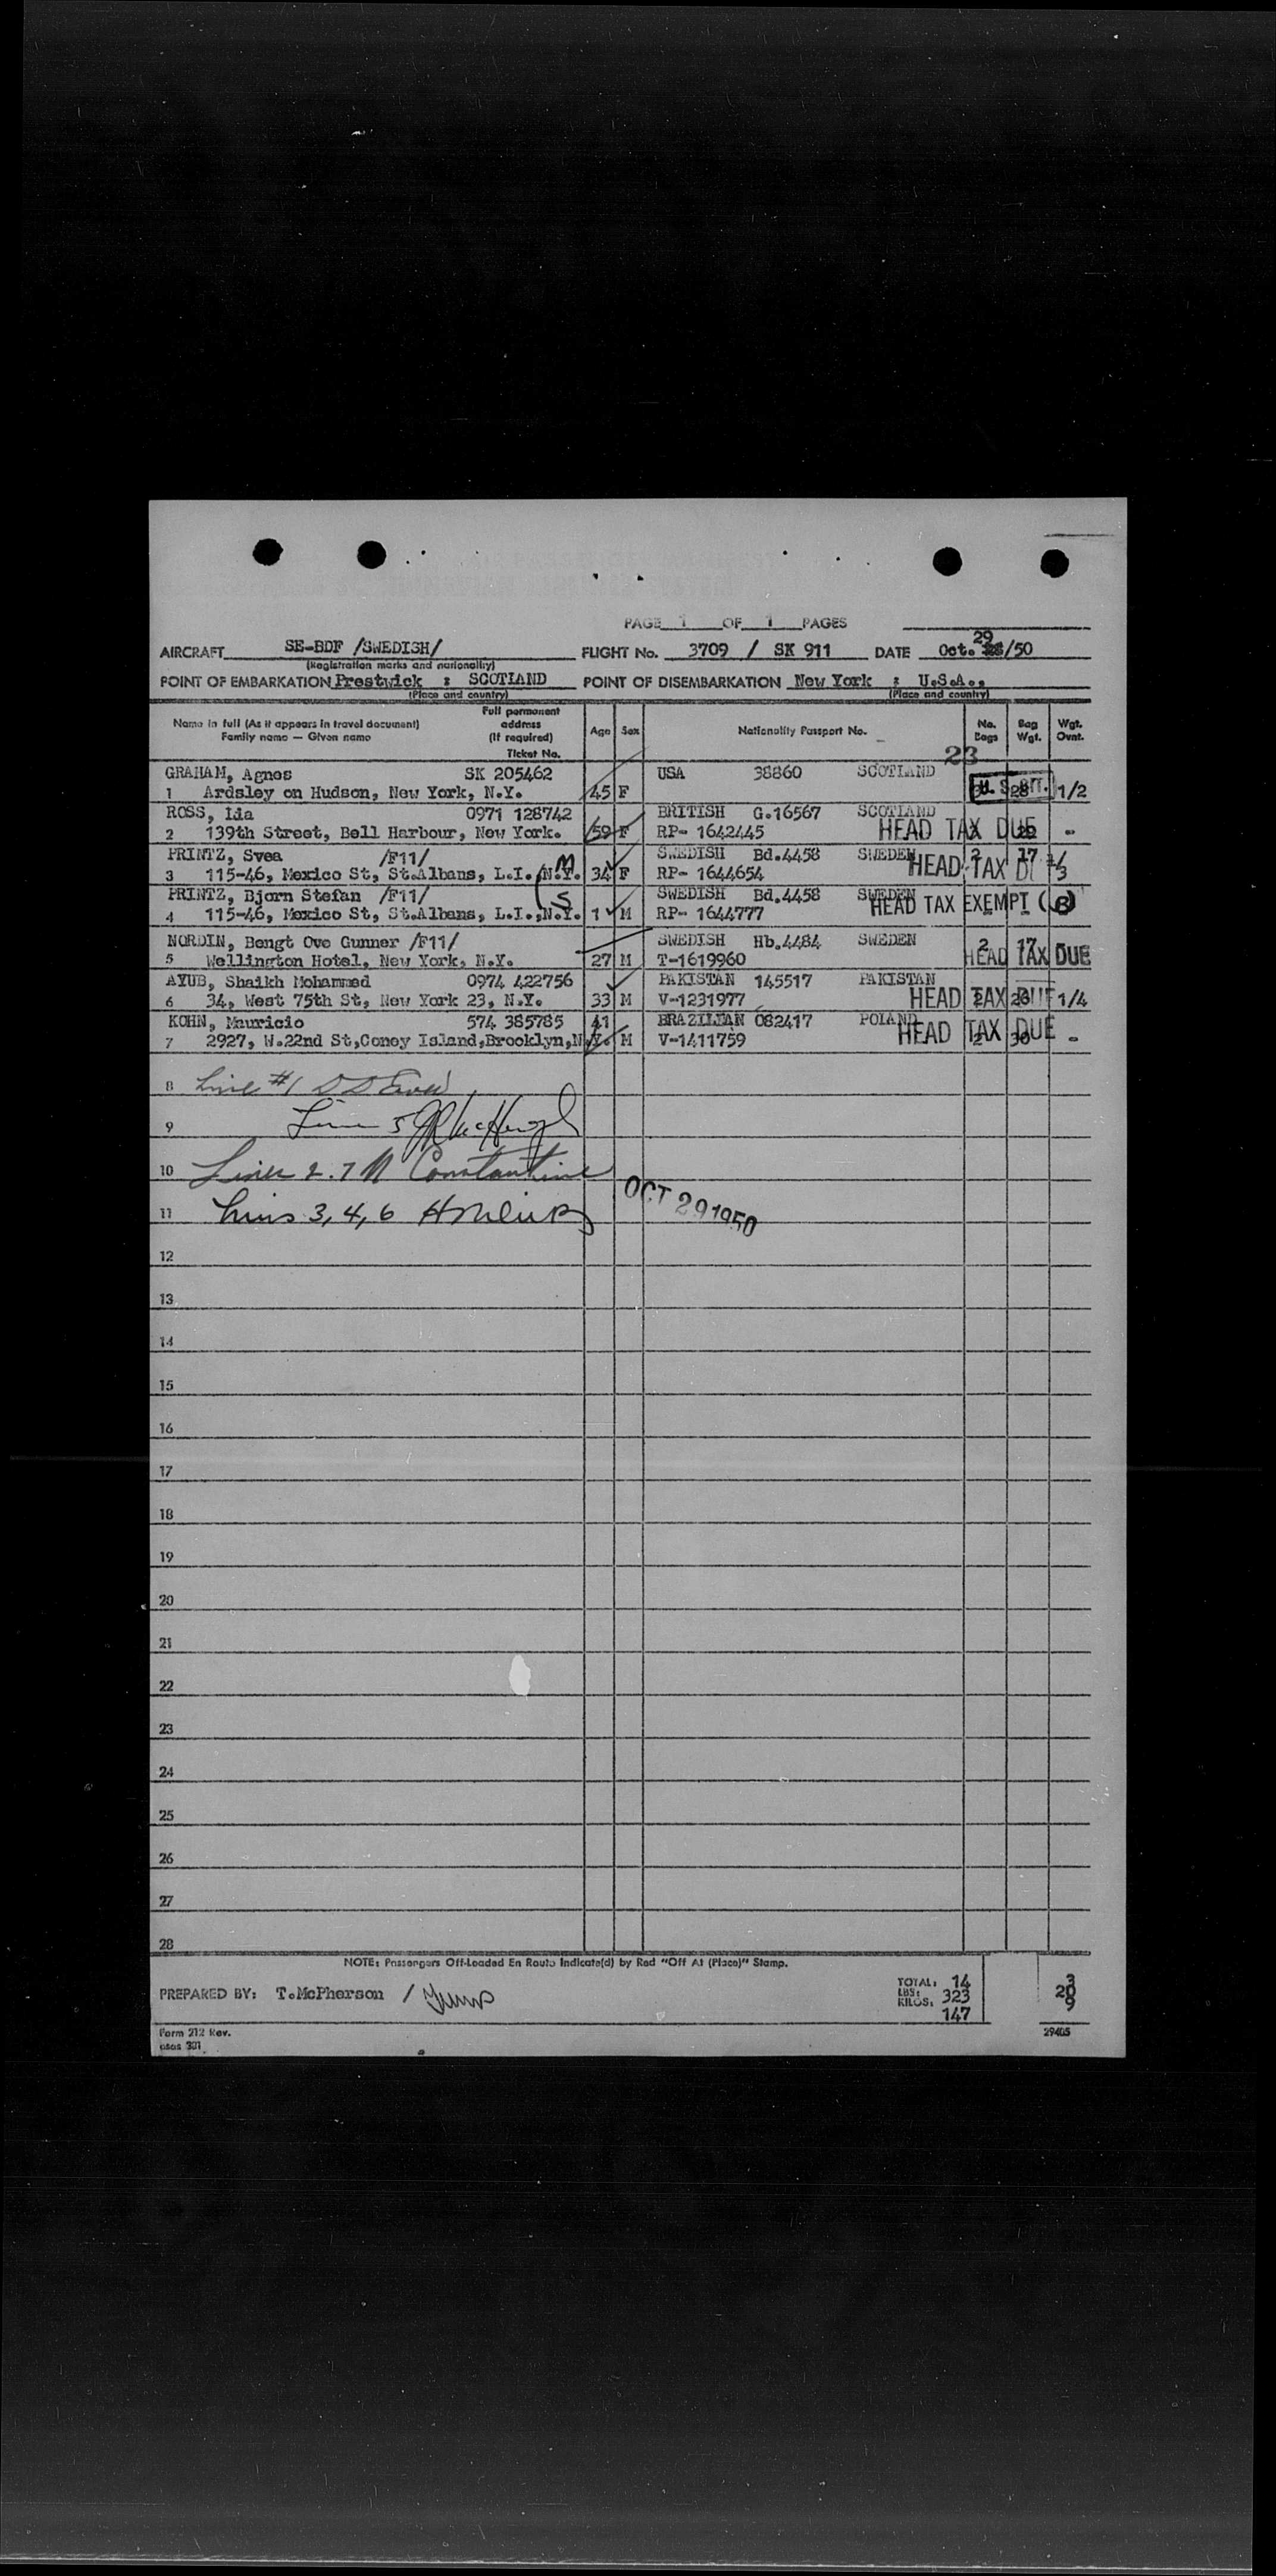 PAGE 1 OF 1 PAGES
AIRCRAFT SE-BDF /SWEDISH/ FLIGHT No. 3709 / SK 911 DATE Oct. 29/50
(Registration marks and nationality)
POINT OF EMBARKATION Prestwick : SCOTLAND POINT OF DISEMBARKATION New York : U.S.A.,
(Place and country) (Place and country)
Name in full (As it appears in travel document) Family name — Given name Full permanent address (If required) Ticket No. Age Sex Nationality Passport No. No. Bags Bag Wgt. Wgt. Ovnt.
23
GRAHAM, Agnes SK 205462 USA 38860 SCOTLAND
1 Ardsley on Hudson, New York, N.Y. 45 F 28 1/2
ROSS, Ida 0971 128742 BRITISH G.16567 SCOTLAND
2 139th Street, Bell Harbour, New York. 59 F RP- 1642445 HEAD TAX DUE -
PRINTZ, Svea /F11/ SWEDISH Bd.4458 SWEDEN 2 17
3 115-46, Mexico St, St.Albans, L.I., N.Y. M 34 F RP- 1644654 HEAD TAX
PRINTZ, Bjorn Stefan /F11/ SWEDISH Bd.4458 SWEDEN
4 115-46, Mexico St, St.Albans, L.I.,N.Y. S 1 M RP- 1644777 HEAD TAX EXEMPT (B)
NORDIN, Bengt Ove Gunner /F11/ SWEDISH Hb.4484 SWEDEN 2 17
5 Wellington Hotel, New York, N.Y. 27 M T-1619960 HEAD TAX DUE
AYUB, Shaikh Mohammed 0974 422756 PAKISTAN 145517 PAKISTAN
6 34, West 75th St, New York 23, N.Y. 33 M V-1231977 HEAD TAX DUE 1/4
KOHN, Mauricio 574 385785 41 BRAZILIAN 082417 POLAND
7 2927, W.22nd St,Coney Island,Brooklyn,N.Y. M V-1411759 HEAD TAX DUE -
8 Line #1
9 Line 5
10 Lines 2. 7 N Constantine
11 Lines 3, 4, 6
OCT 29 1950
12
13
14
15
16
17
18
19
20
21
22
23
24
25
26
27
28
NOTE: Passengers Off-Loaded En Route Indicate(d) by Red "Off At (Place)" Stamp.
PREPARED BY: T.McPherson /
TOTAL: 14 3
LBS: 323 20
KILOS: 147 9
Form 212 Rev.
29405